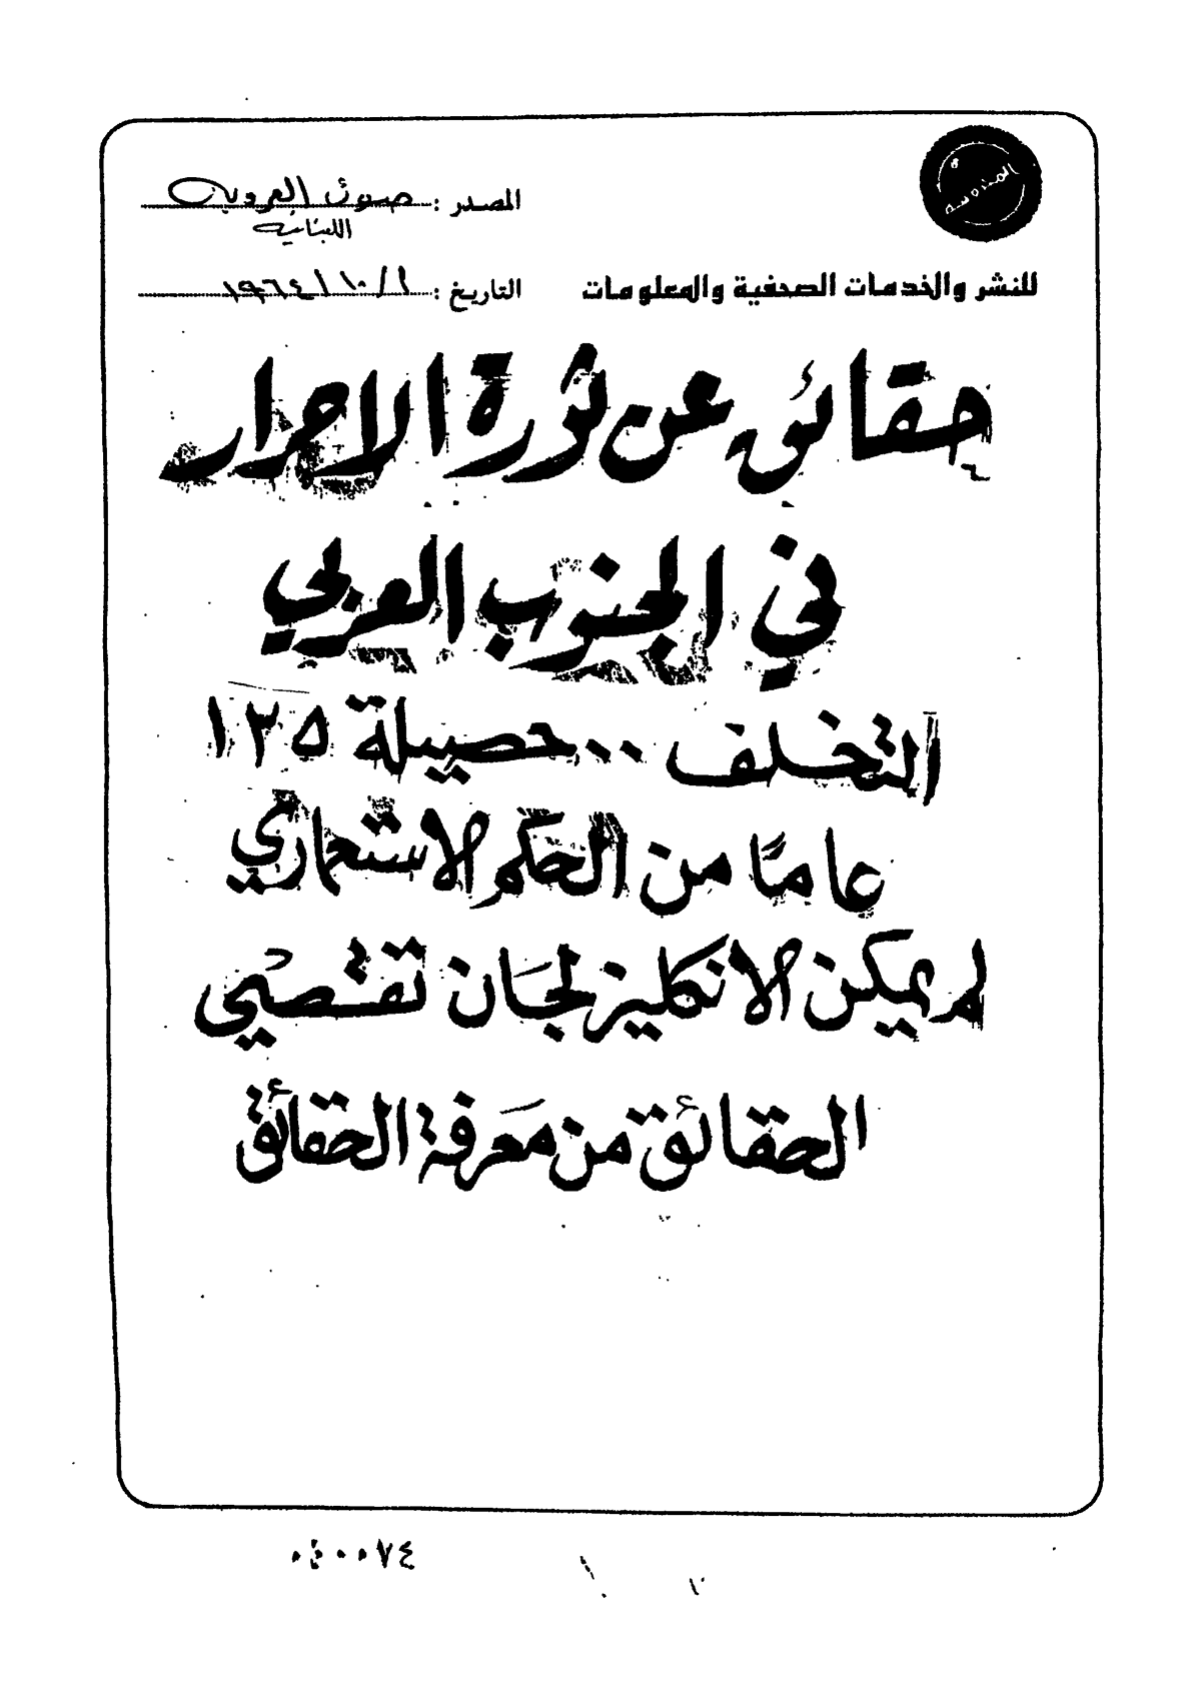 المصدر : صوت العروبة
اللبنانية
للنشر والخدمات الصحفية والمعلومات
التاريخ : ١ / ١٠ / ١٩٦٤
حقائق عن ثورة الاحرار
في الجنوب العربي
التخلف .. حصيلة ١٢٥
عامًا من الحكم الاستعماري
لم يمكن الانكليز لجان تقصي
الحقائق من معرفة الحقائق